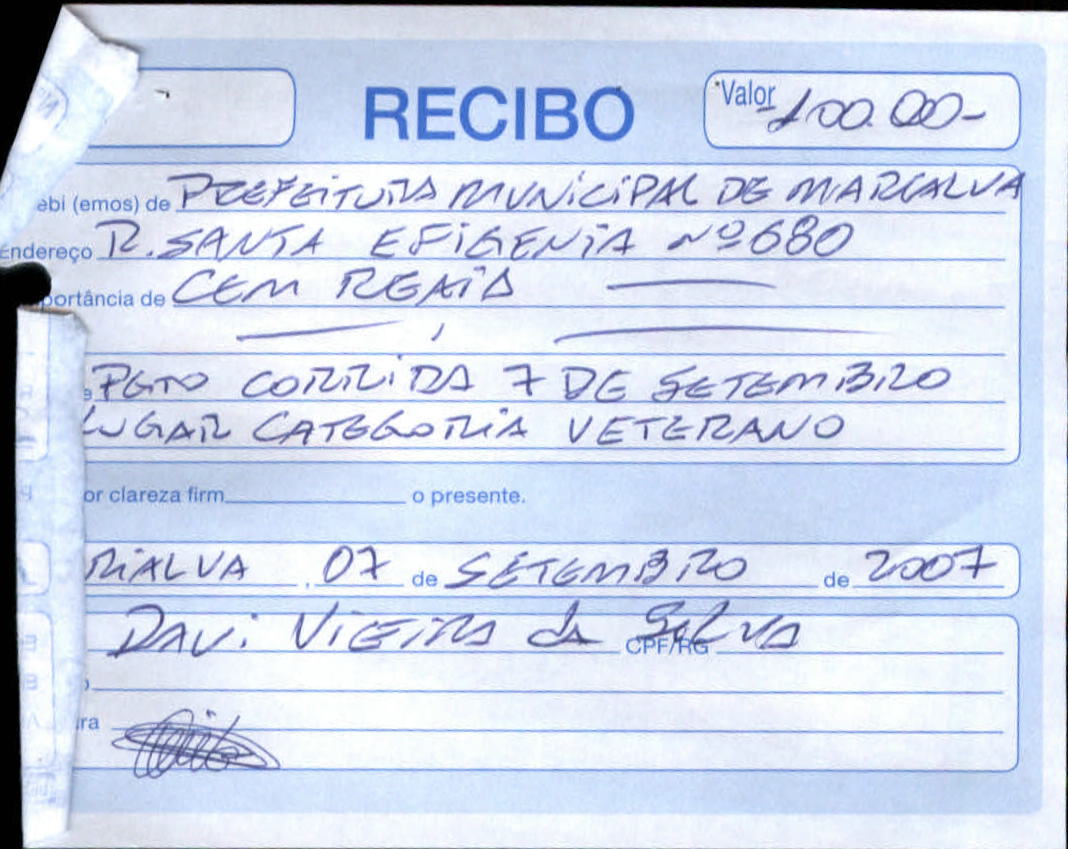 RECIBO
Valor 100.00-
ebi (emos) de PREFEITURA MUNICIPAL DE MARIALVA
Endereço R. SANTA EFIGENIA Nº 680
portância de CEM REAIS
PGTO CORRIDA 7 DE SETEMBRO
LUGAR CATEGORIA VETERANO
or clareza firm o presente.
RIALVA , 07 de SETEMBRO de 2007
DAVI VIEIRA da SILVA CPF/RG
ra